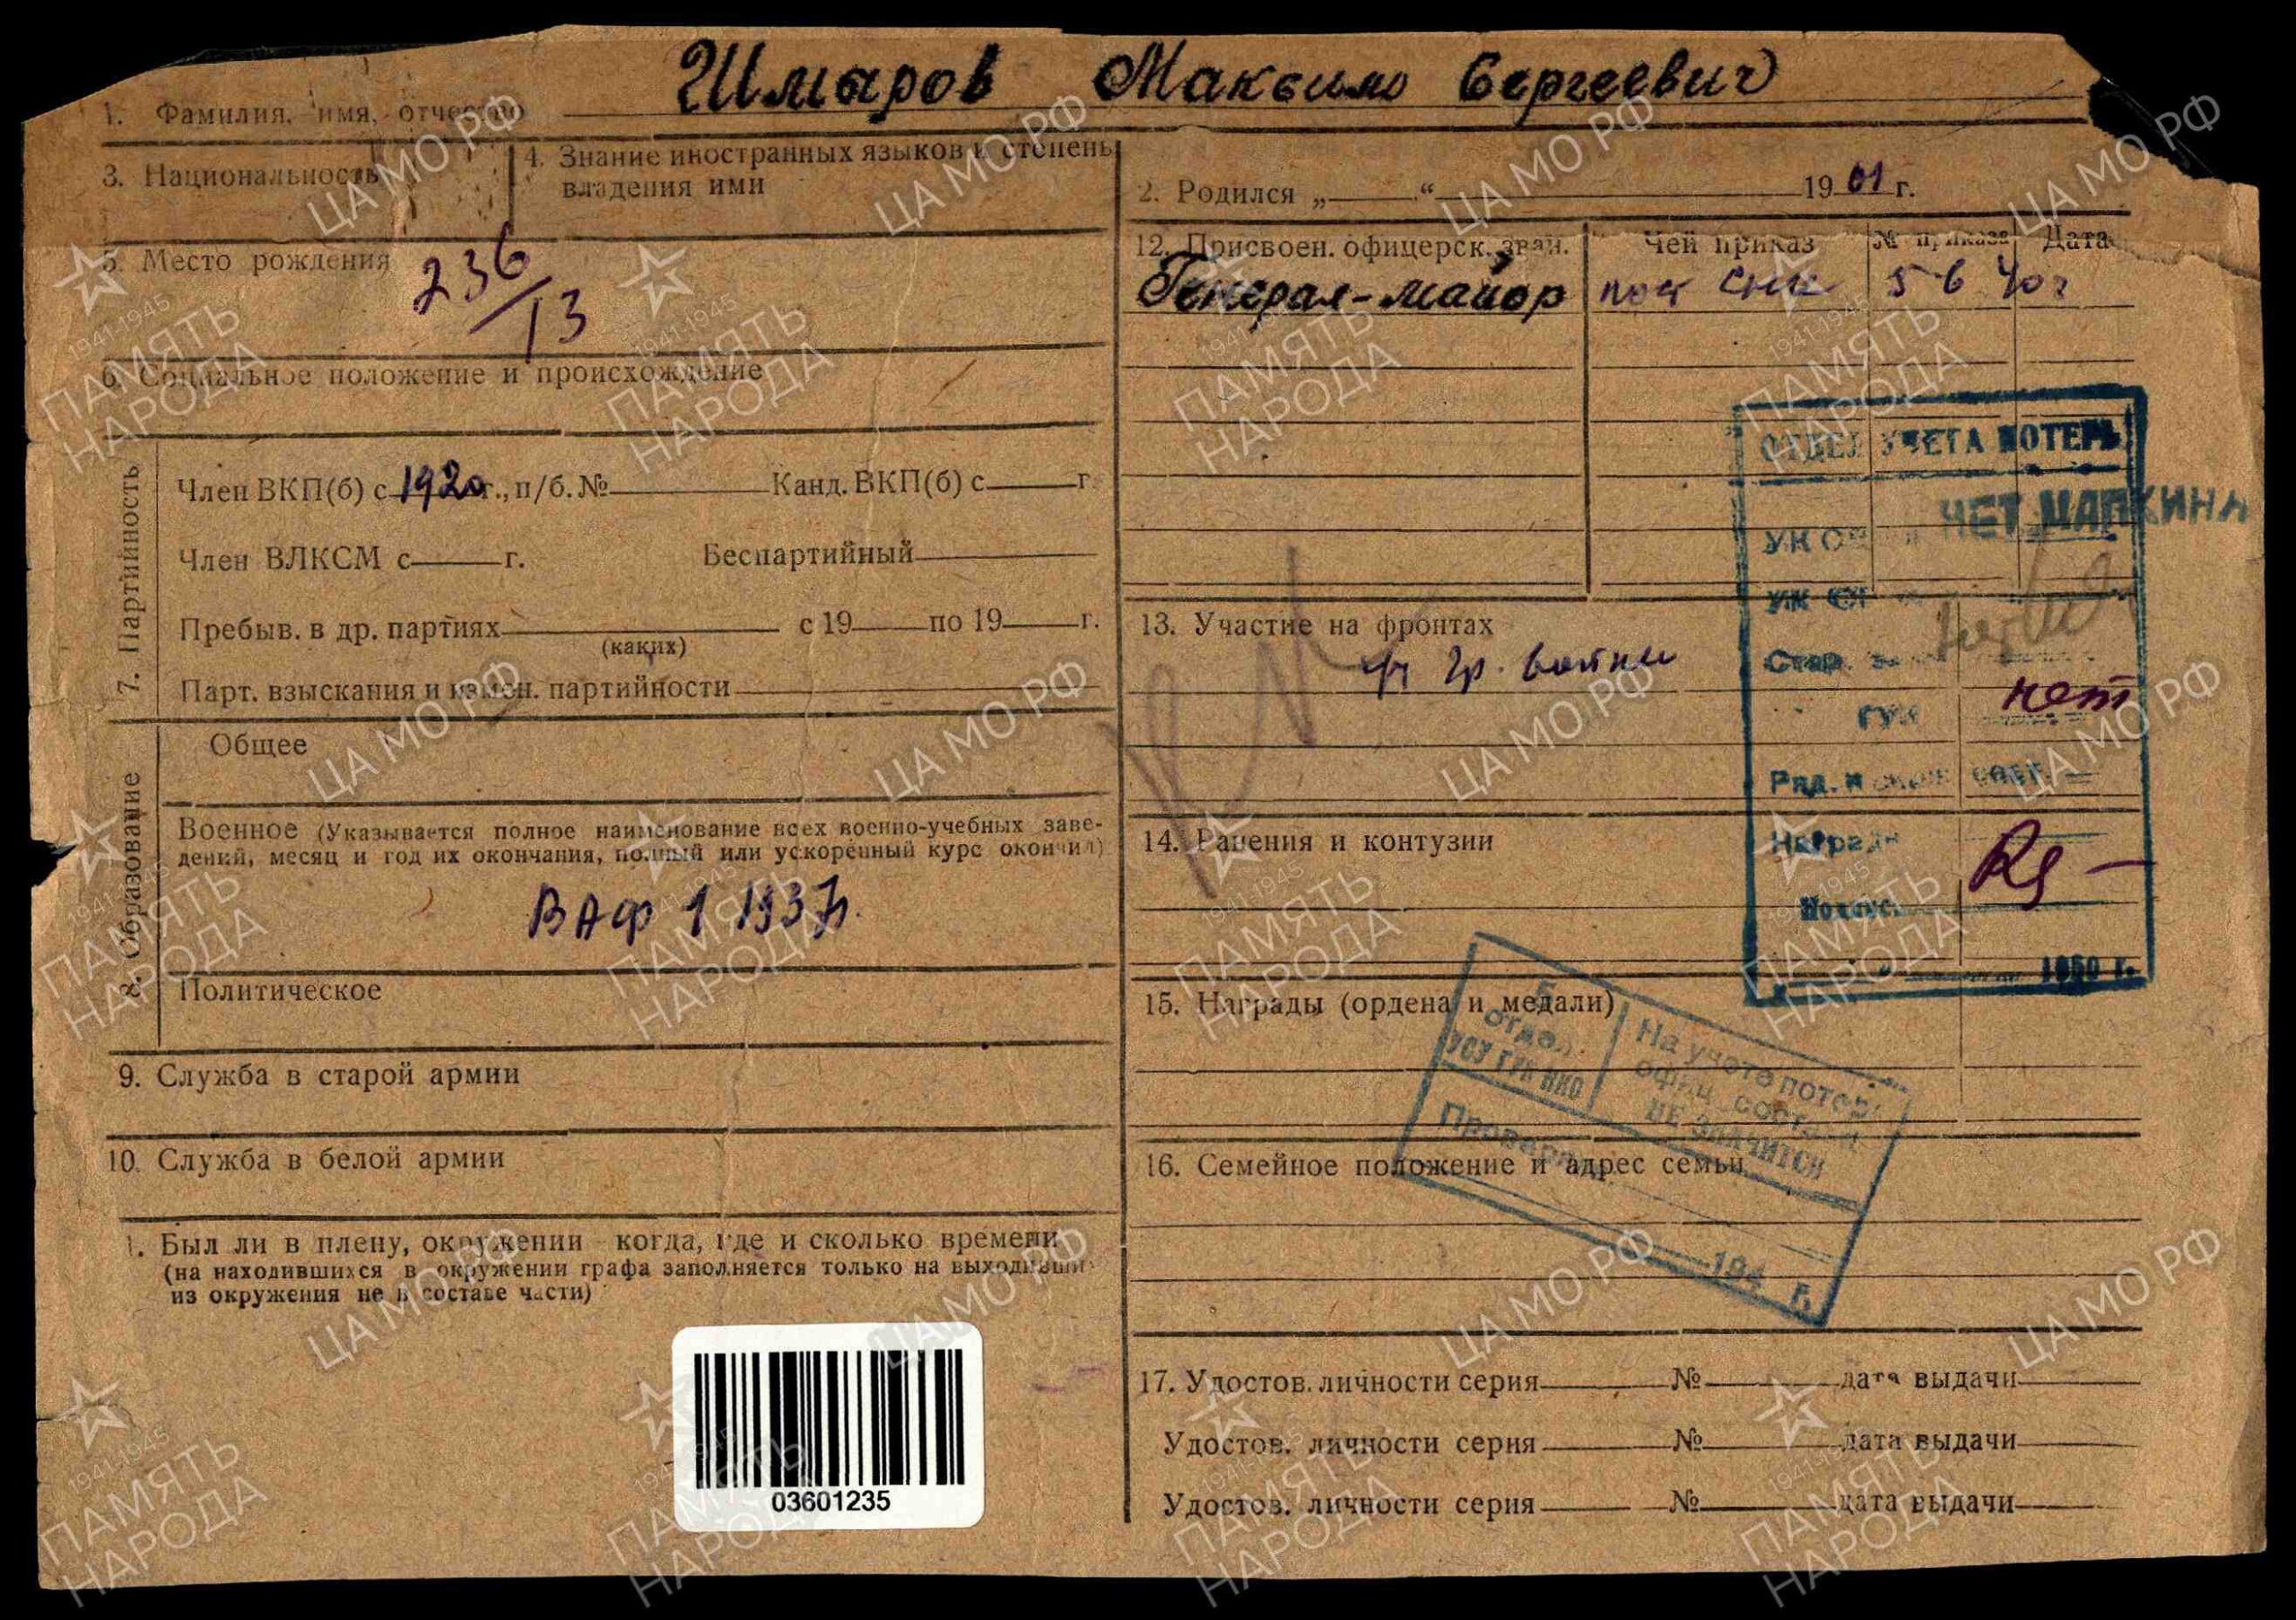 Шмаров Максим Сергеевич
1. Фамилия, имя, отчество
3. Национальность
4. Знание иностранных языков и степень
владения ими
2. Родился „ “ 1901 г.
5. Место рождения
236/13
6. Социальное положение и происхождение
7. Партийность
Член ВКП(б) с 1920 г., п/б. № Канд. ВКП(б) с г.
Член ВЛКСМ с г. Беспартийный
Пребыв. в др. партиях с 19 по 19 г.
(каких)
Парт. взыскания и измен. партийности
8. Образование
Общее
Военное (Указывается полное наименование всех военно-учебных заве-
дений, месяц и год их окончания, полный или ускоренный курс окончил)
ВАФ 1 1937г.
Политическое
9. Служба в старой армии
10. Служба в белой армии
1. Был ли в плену, окружении когда, где и сколько времени
(на находившихся в окружении графа заполняется только на выходивших
из окружения не в составе части)
03601235
12. Присвоен. офицерск. зван. Чей приказ № приказа Дата
Генерал-майор пост СНК 5 6 40г
13. Участие на фронтах
уч гр. войны
14. Ранения и контузии
15. Награды (ордена и медали)
16. Семейное положение и адрес семьи
17. Удостов. личности серия № дата выдачи
Удостов. личности серия № дата выдачи
Удостов. личности серия № дата выдачи
ОТДЕЛ УЧЕТА ПОТЕРЬ
НЕТ ЦАПКИНА
УК
УК
Стар.
ГУК нет
Ряд. и
Награды
1950 г.
отдел.
УСУ ГУК НКО
На учете потерь
офиц. состава
НЕ ЗНАЧИТСЯ
Проверил
194 г.
ЦА МО РФ
1941-1945
ПАМЯТЬ
НАРОДА